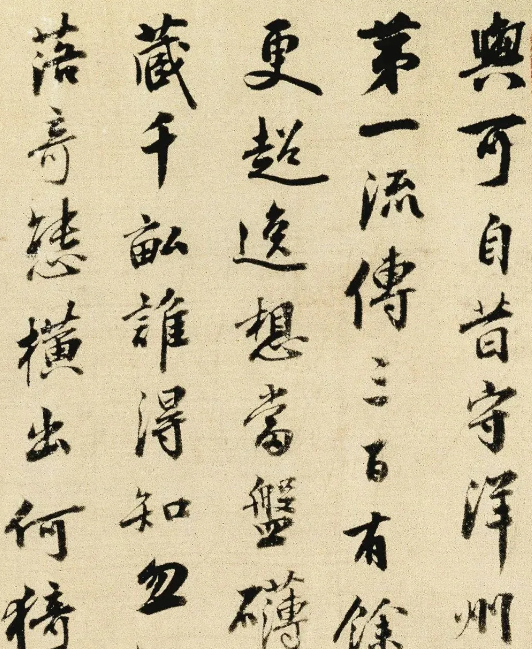 與可自昔守洋州
第一流傳三百有餘
更超逸想當盤礴
蔵千畝誰得知忽
落奇態橫出何猗